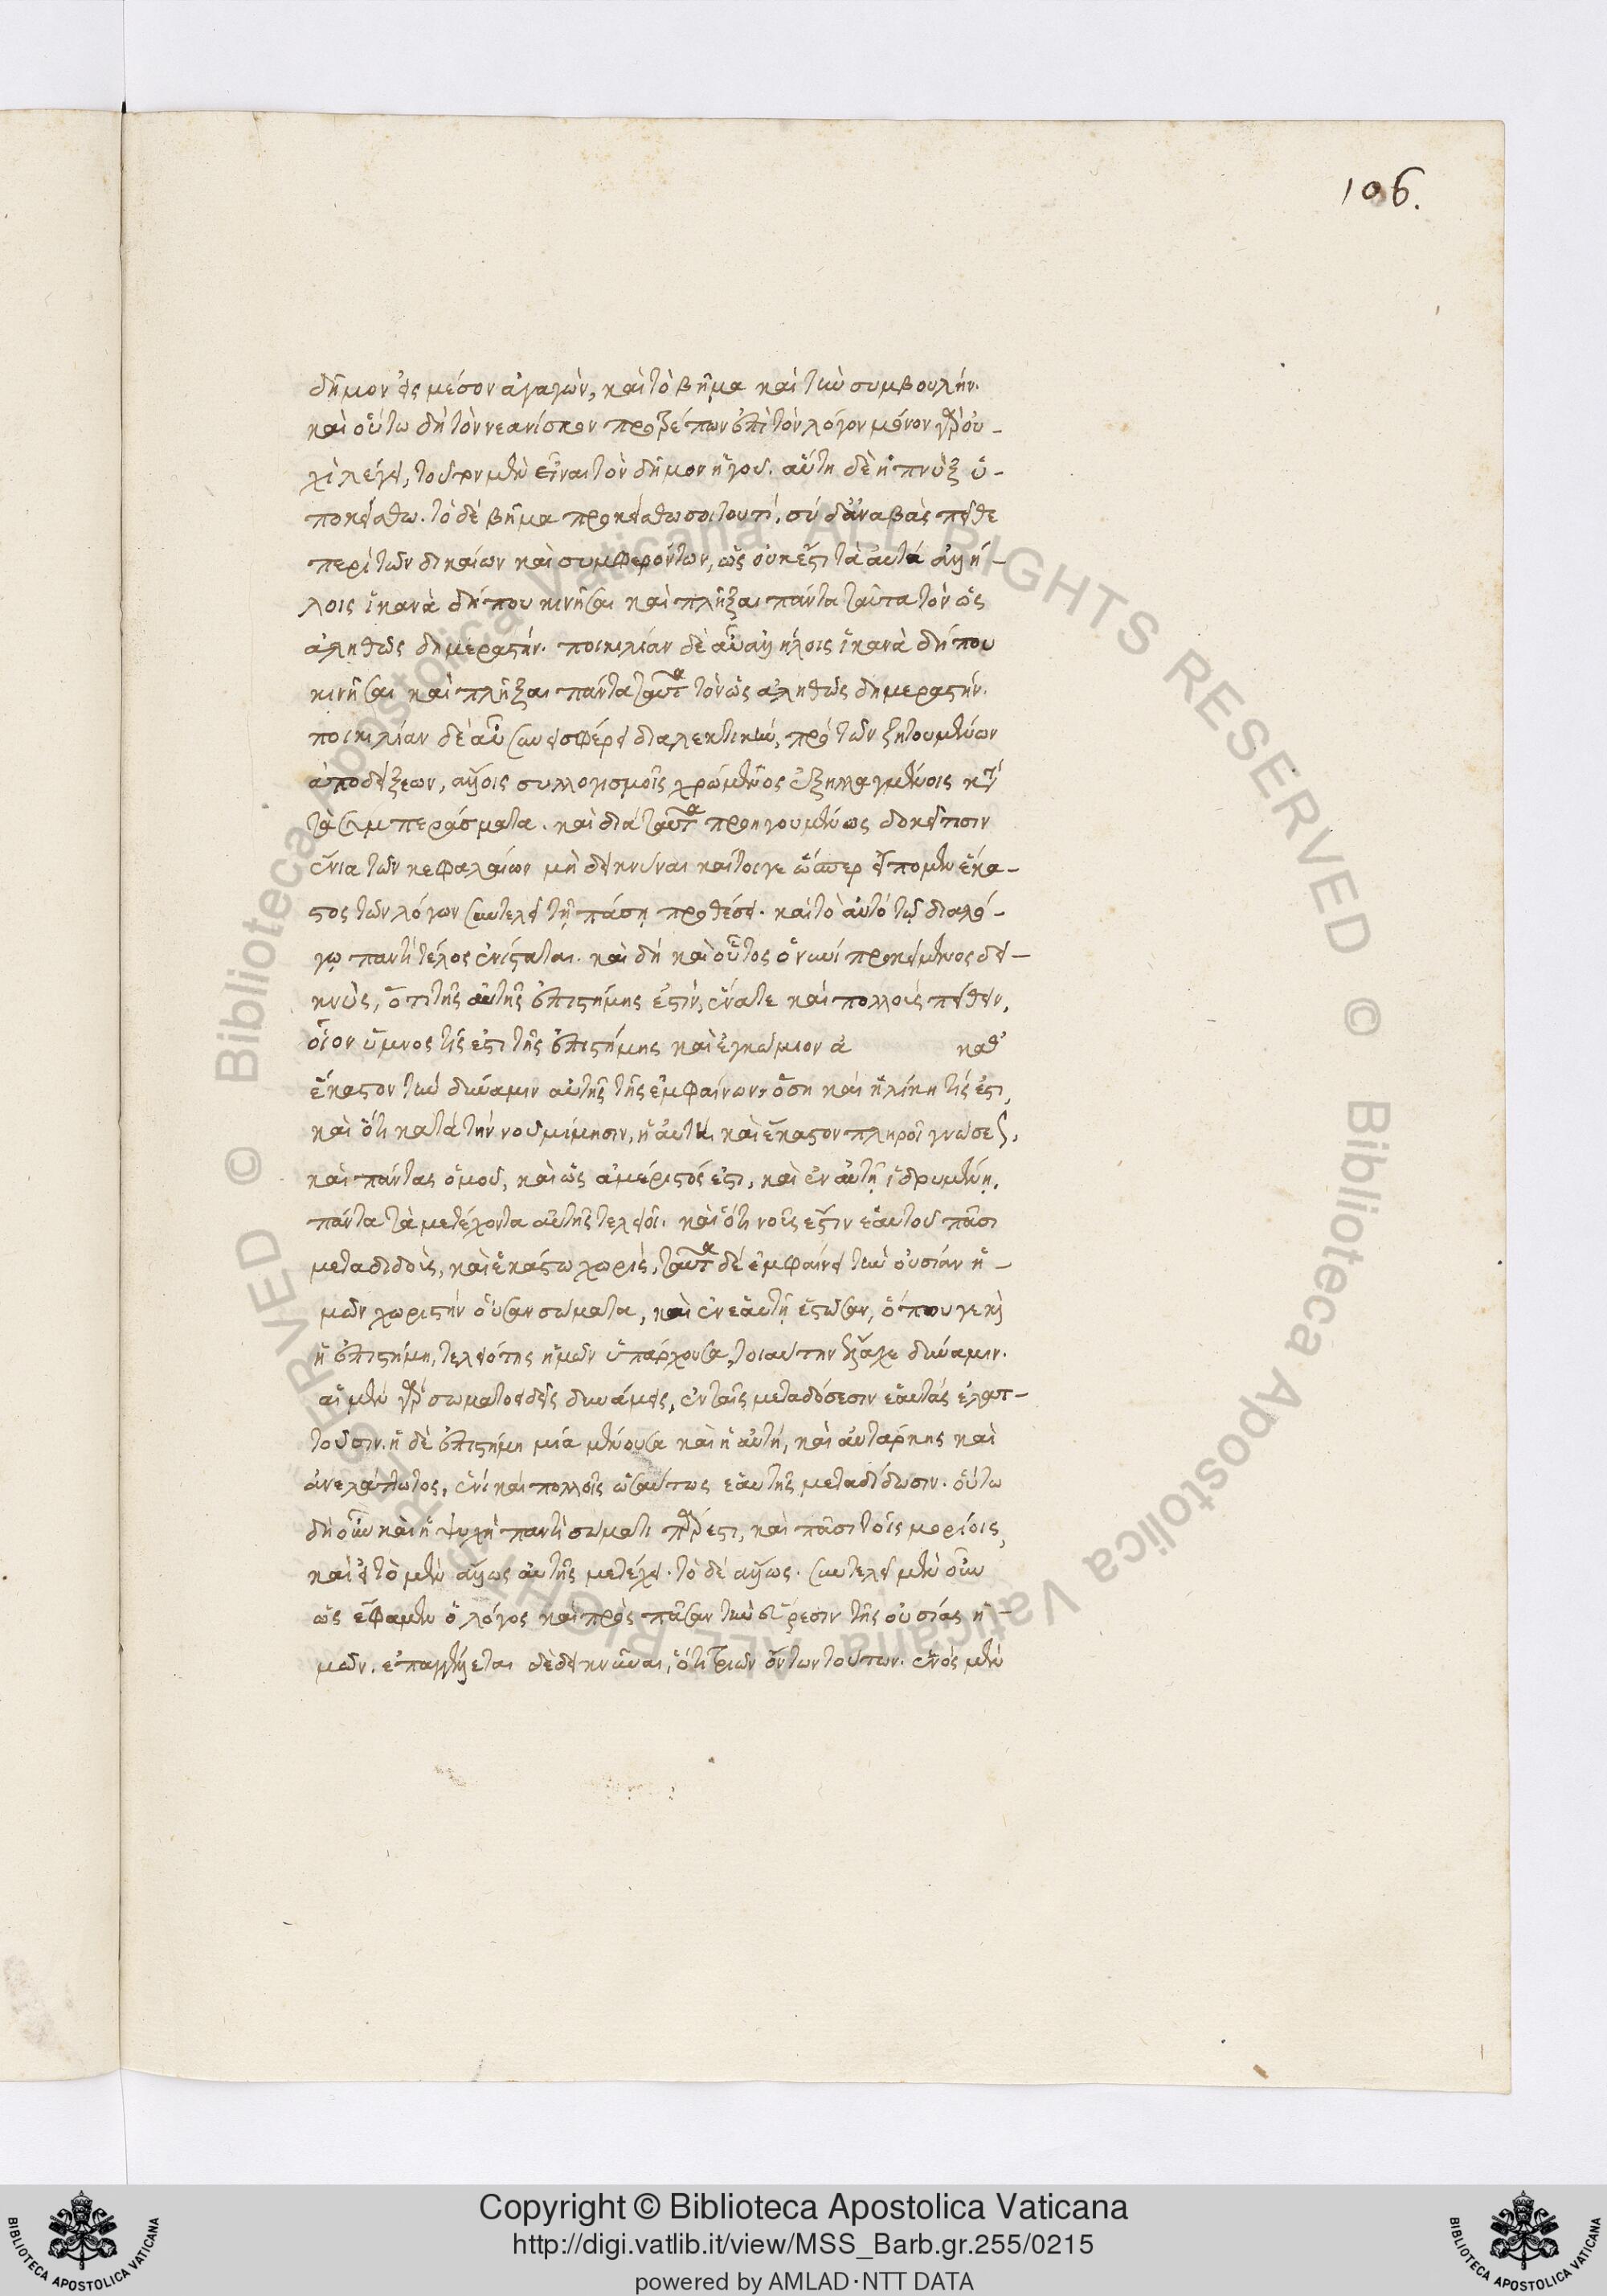 106.
δῆμον εἰς μέσον ἀγαγὼν, καὶ τὸ βῆμα καὶ τὴν συμβουλήν.
καὶ οὕτω δὴ τὸν νεανίσκον προτρέπων ἐπὶ τὸν λόγον μόνον γὰρ οὐ-
χὶ λέγει, τουτονὶ μὲν εἶναι τὸν δῆμον ἡγοῦ. αὕτη δὲ ἡ πνὺξ ὑ-
ποκείσθω. τὸ δὲ βῆμα προκείσθω σοι τουτί, σὺ δ' ἀναβὰς πεῖθε
περὶ τῶν δικαίων καὶ συμφερόντων, ὡς οὐκ ἔστι τὰ αὐτὰ ἀλλή-
λοις ἱκανὰ δήπου κινῆσαι καὶ πλῆξαι πάντα ταῦτα τὸν ὡς
ἀληθῶς δημεραστήν. ποικιλίαν δὲ αὖ ἀλλήλοις ἱκανὰ δήπου
κινῆσαι καὶ πλῆξαι πάντα ταῦτα τὸν ὡς ἀληθῶς δημεραστήν.
ποικιλίαν δὲ αὖ συνεισφέρει διαλεκτικὴν, πρὸ τῶν ζητουμένων
ἀποδείξεων, ἄλλοις συλλογισμοῖς χρώμενος ἐξηλλαγμένοις κατὰ
τὰ συμπεράσματα. καὶ διὰ ταῦτα προηγουμένως δοκεῖ τισιν
ἔνια τῶν κεφαλαίων μὴ δεικνύναι καίτοιγε ὥσπερ εἴπομεν ἕκα-
στος τῶν λόγων συντελεῖ τῇ πάσῃ προθέσει. καὶ τὸ αὐτὸ τῷ διαλό-
γῳ παντὶ τέλος ἐνίσταται. καὶ δὴ καὶ οὗτος ὁ νυνὶ προκείμενος δει-
κνὺς, ὅτι τῆς αὐτῆς ἐπιστήμης ἐστὶν, ἕνα τε καὶ πολλοὺς πείθειν,
οἷον ὕμνος τίς ἐστι τῆς ἐπιστήμης καὶ ἐγκώμιον ἀ καθ'
ἕκαστον τὴν δύναμιν αὐτῆς τῆς ἐμφαίνων, ὅση καὶ ἡλίκη τίς ἐστι,
καὶ ὅτι κατὰ τὴν νοῦ μίμησιν, ἡ αὐτὴ, καὶ ἕκαστον πληροῖ γνώσεως,
καὶ πάντας ὁμοῦ, καὶ ὡς ἀμέριστός ἐστι, καὶ ἐν αὐτῇ ἱδρυμένη.
πάντα τὰ μετέχοντα αὐτῆς τελειοῖ. καὶ ὅτι νοῦς ἐστιν ἑαυτοῦ πᾶσι
μεταδιδοὺς, καὶ ἑκάστω χωρὶς, ταῦτα δὲ ἐμφαίνει τὴν οὐσίαν ἡ-
μῶν χωριστὴν οὖσαν σώματα, καὶ ἐν ἑαυτῇ ἑστῶσαν, ὅπου γε καὶ
ἡ ἐπιστήμη, τελειότης ἡμῶν ὑπάρχουσα, τοιαύτην ἔλαχε δύναμιν.
αἱ μὲν γὰρ σωματοειδεῖς δυνάμεις, ἐν ταῖς μεταδόσεσιν ἑαυτὰς ἐλατ-
τοῦσιν. ἡ δὲ ἐπιστήμη μία μένουσα καὶ ἡ αὐτή, καὶ αὐτάρκης καὶ
ἀνελάττωτος, ἑνὶ καὶ πολλοῖς ὡσαύτως ἑαυτῆς μεταδίδωσιν. οὕτω
δὴ οὖν καὶ ἡ ψυχὴ παντὶ σώματι πάρεστι, καὶ πᾶσι τοῖς μορίοις,
καὶ εἰ τὸ μὲν ἄλλως αὐτῆς μετέχει. τὸ δὲ ἄλλως. συντελεῖ μὲν οὖν
ὡς ἔφαμεν ὁ λόγος καὶ πρὸς πᾶσαν τὴν αἵρεσιν τῆς οὐσίας ἡ-
μῶν. ἐπαγγέλλεται δὲ δεικνύναι, ὅτι τριῶν ὄντων τούτων. ἑνὸς μὲν
Copyright © Biblioteca Apostolica Vaticana
http://digi.vatlib.it/view/MSS_Barb.gr.255/0215
powered by AMLAD·NTT DATA